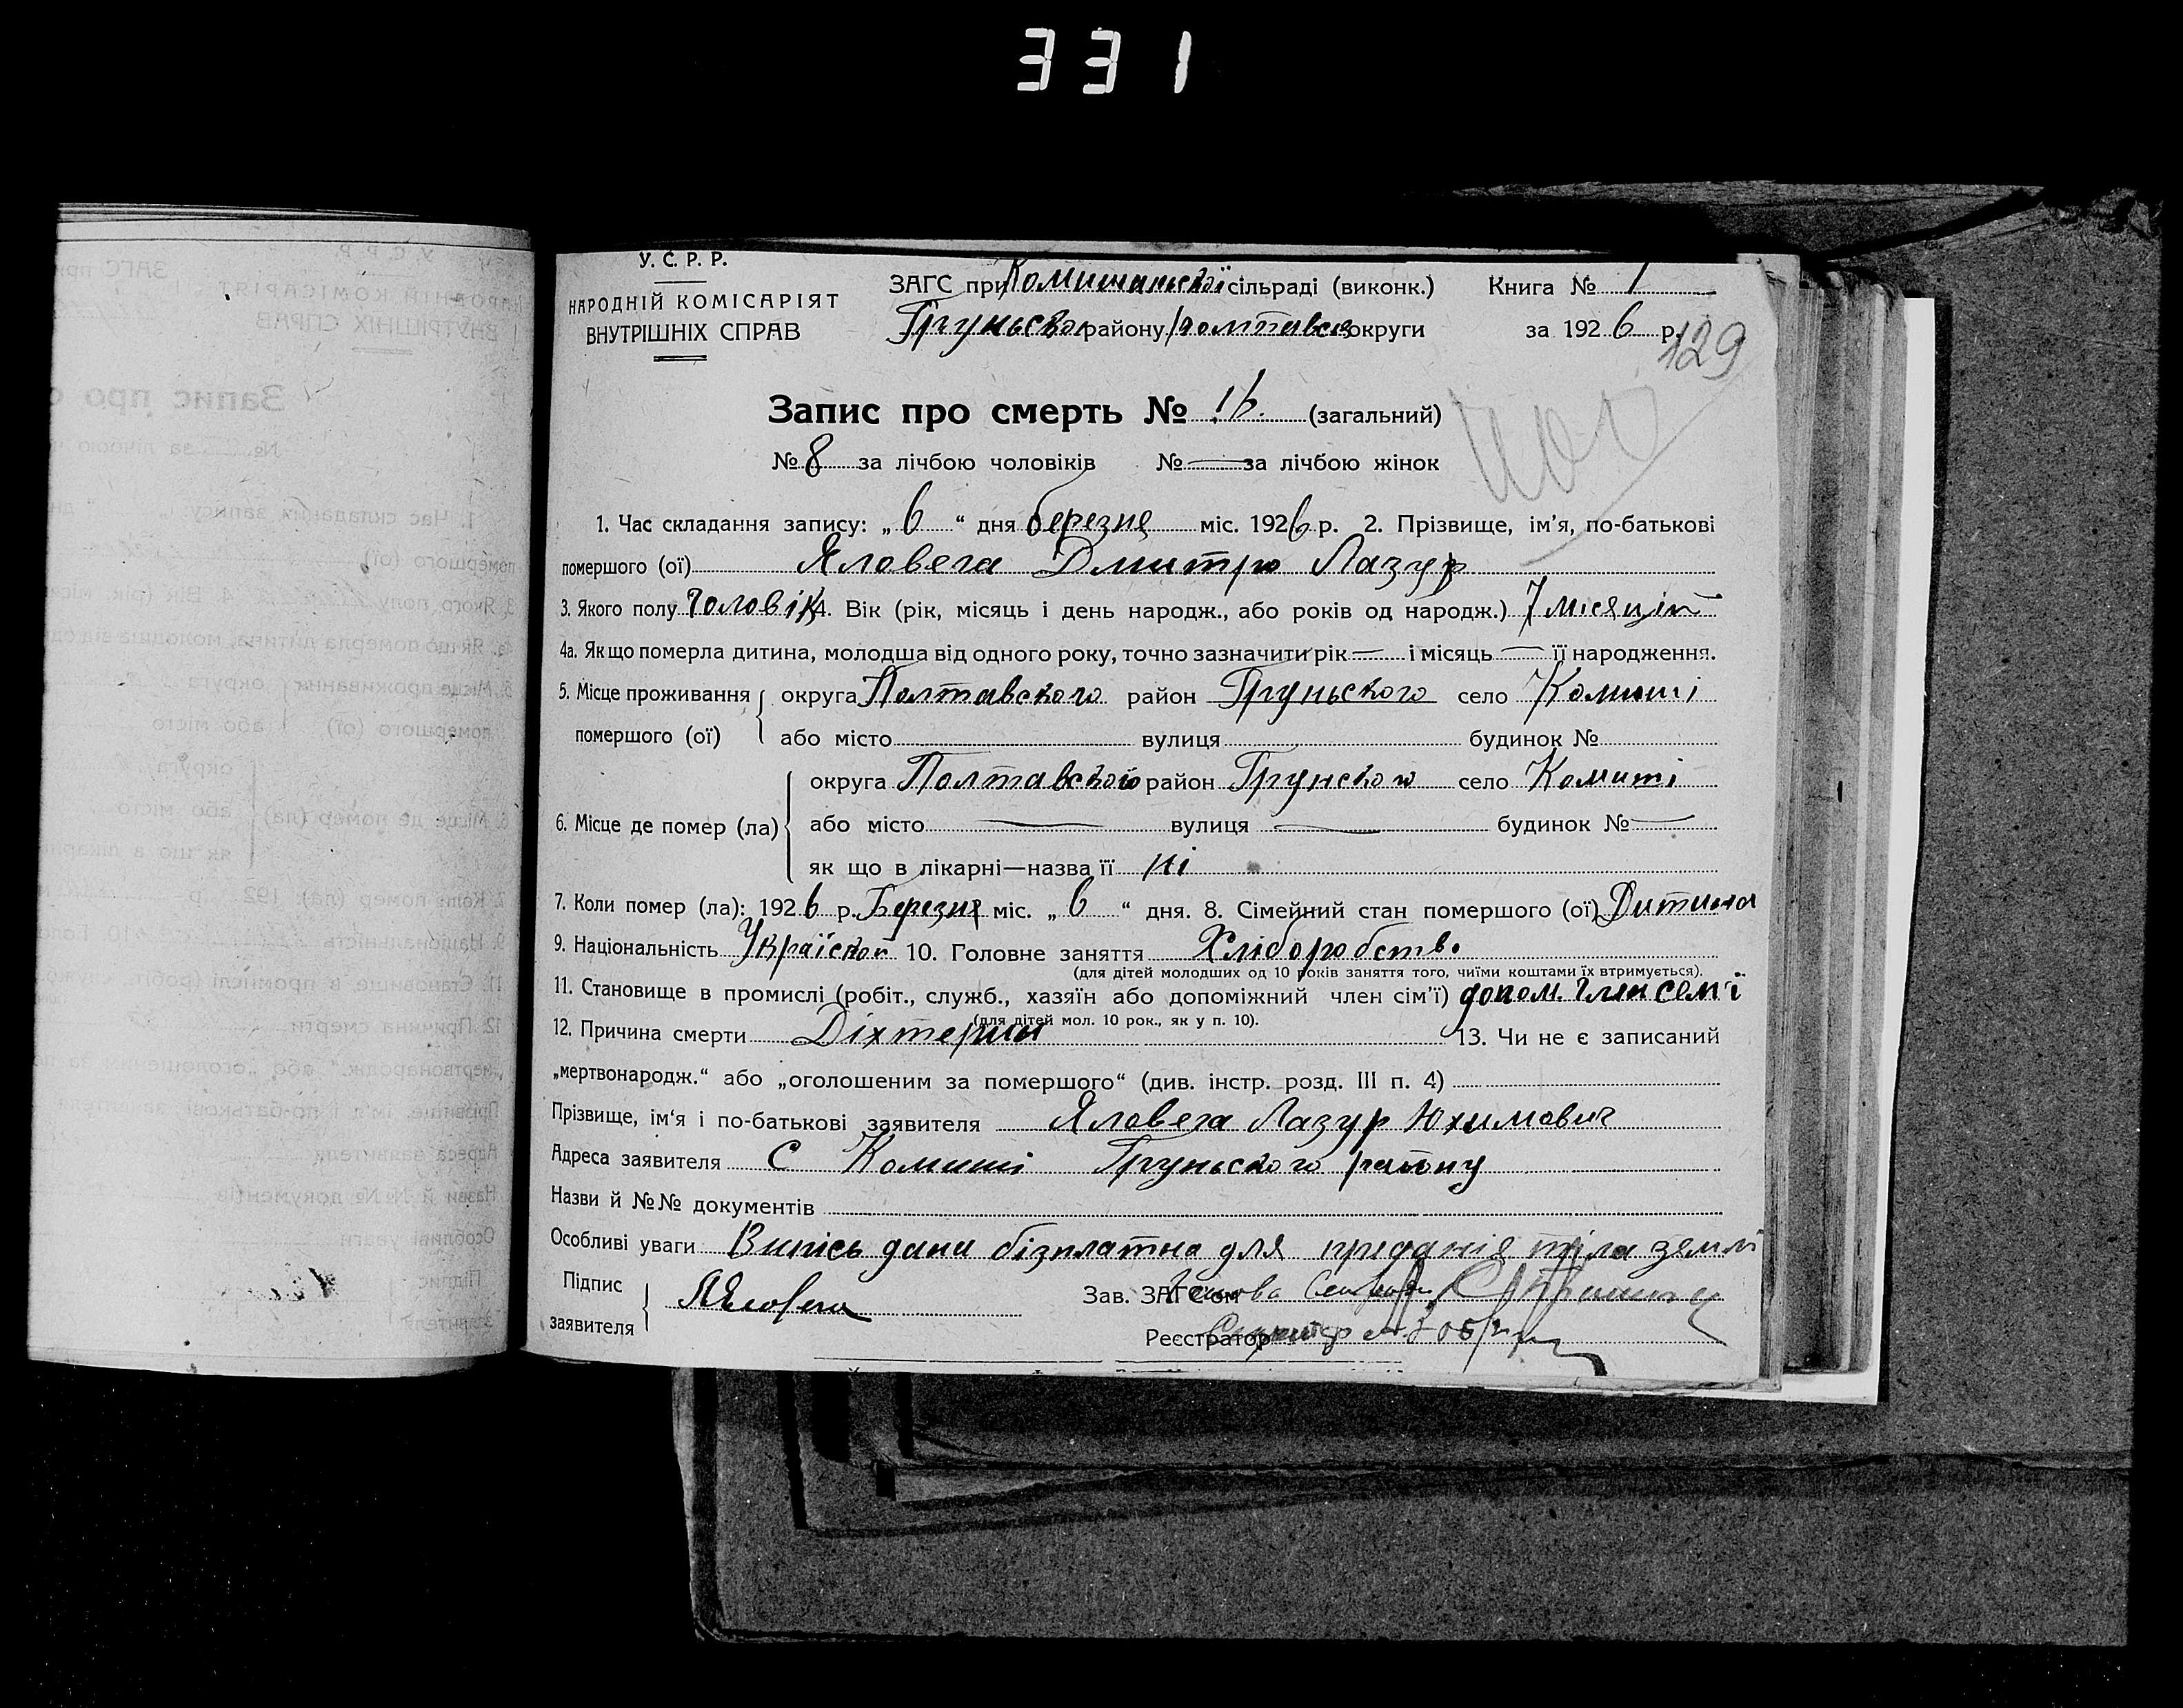 331
У. С. Р. Р.
НАРОДНІЙ КОМІСАРІЯТ
ВНУТРІШНІХ СПРАВ
ЗАГС при Комишанської сільраді (виконк.) Книга № 1
Груньско району Полтавск округи за 1926 р.
129
Запис про смерть № 16. (загальний)
№ 8 за лічбою чоловіків № — за лічбою жінок
1. Час складання запису: „ 6 “ дня березня міс. 1926 р. 2. Прізвище, ім’я, по-батькові
помершого (ої) Яловега Дмитро Лазур
3. Якого полу Чоловік 4. Вік (рік, місяць і день народж., або років од народж.) 7 місяців
4а. Якщо померла дитина, молодша від одного року, точно зазначити рік — і місяць — її народження.
5. Місце проживання округа Полтавского район Груньского село Комиші
помершого (ої) або місто вулиця будинок №
округа Полтавской район Грунского село Комиші
6. Місце де помер (ла) або місто — вулиця — будинок № —
як що в лікарні—назва її ні
7. Коли помер (ла): 1926 р. Березня міс. „ 6 “ дня. 8. Сімейний стан помершого (ої) Дитина
9. Національність Україской 10. Головне заняття Хліборобств.
(для дітей молодших од 10 років заняття того, чиїми коштами їх втримується).
11. Становище в промислі (робіт., служб., хазяїн або допоміжний член сім’ї) допом. член семʼї
(для дітей мол. 10 рок., як у п. 10).
12. Причина смерти Діхтерит 13. Чи не є записаний
„мертвонародж.“ або „оголошеним за помершого“ (див. інстр. розд. III п. 4)
Прізвище, ім‘я і по-батькові заявителя Яловега Лазур Юхимович
Адреса заявителя С Комиші Груньского району
Назви й №№ документів
Особливі уваги Випісь дана бізплатна для преданія тіла землі
Підпис
заявителя ЛЯловега
Зав. ЗАГСом Голова
Реєстратор Секритар